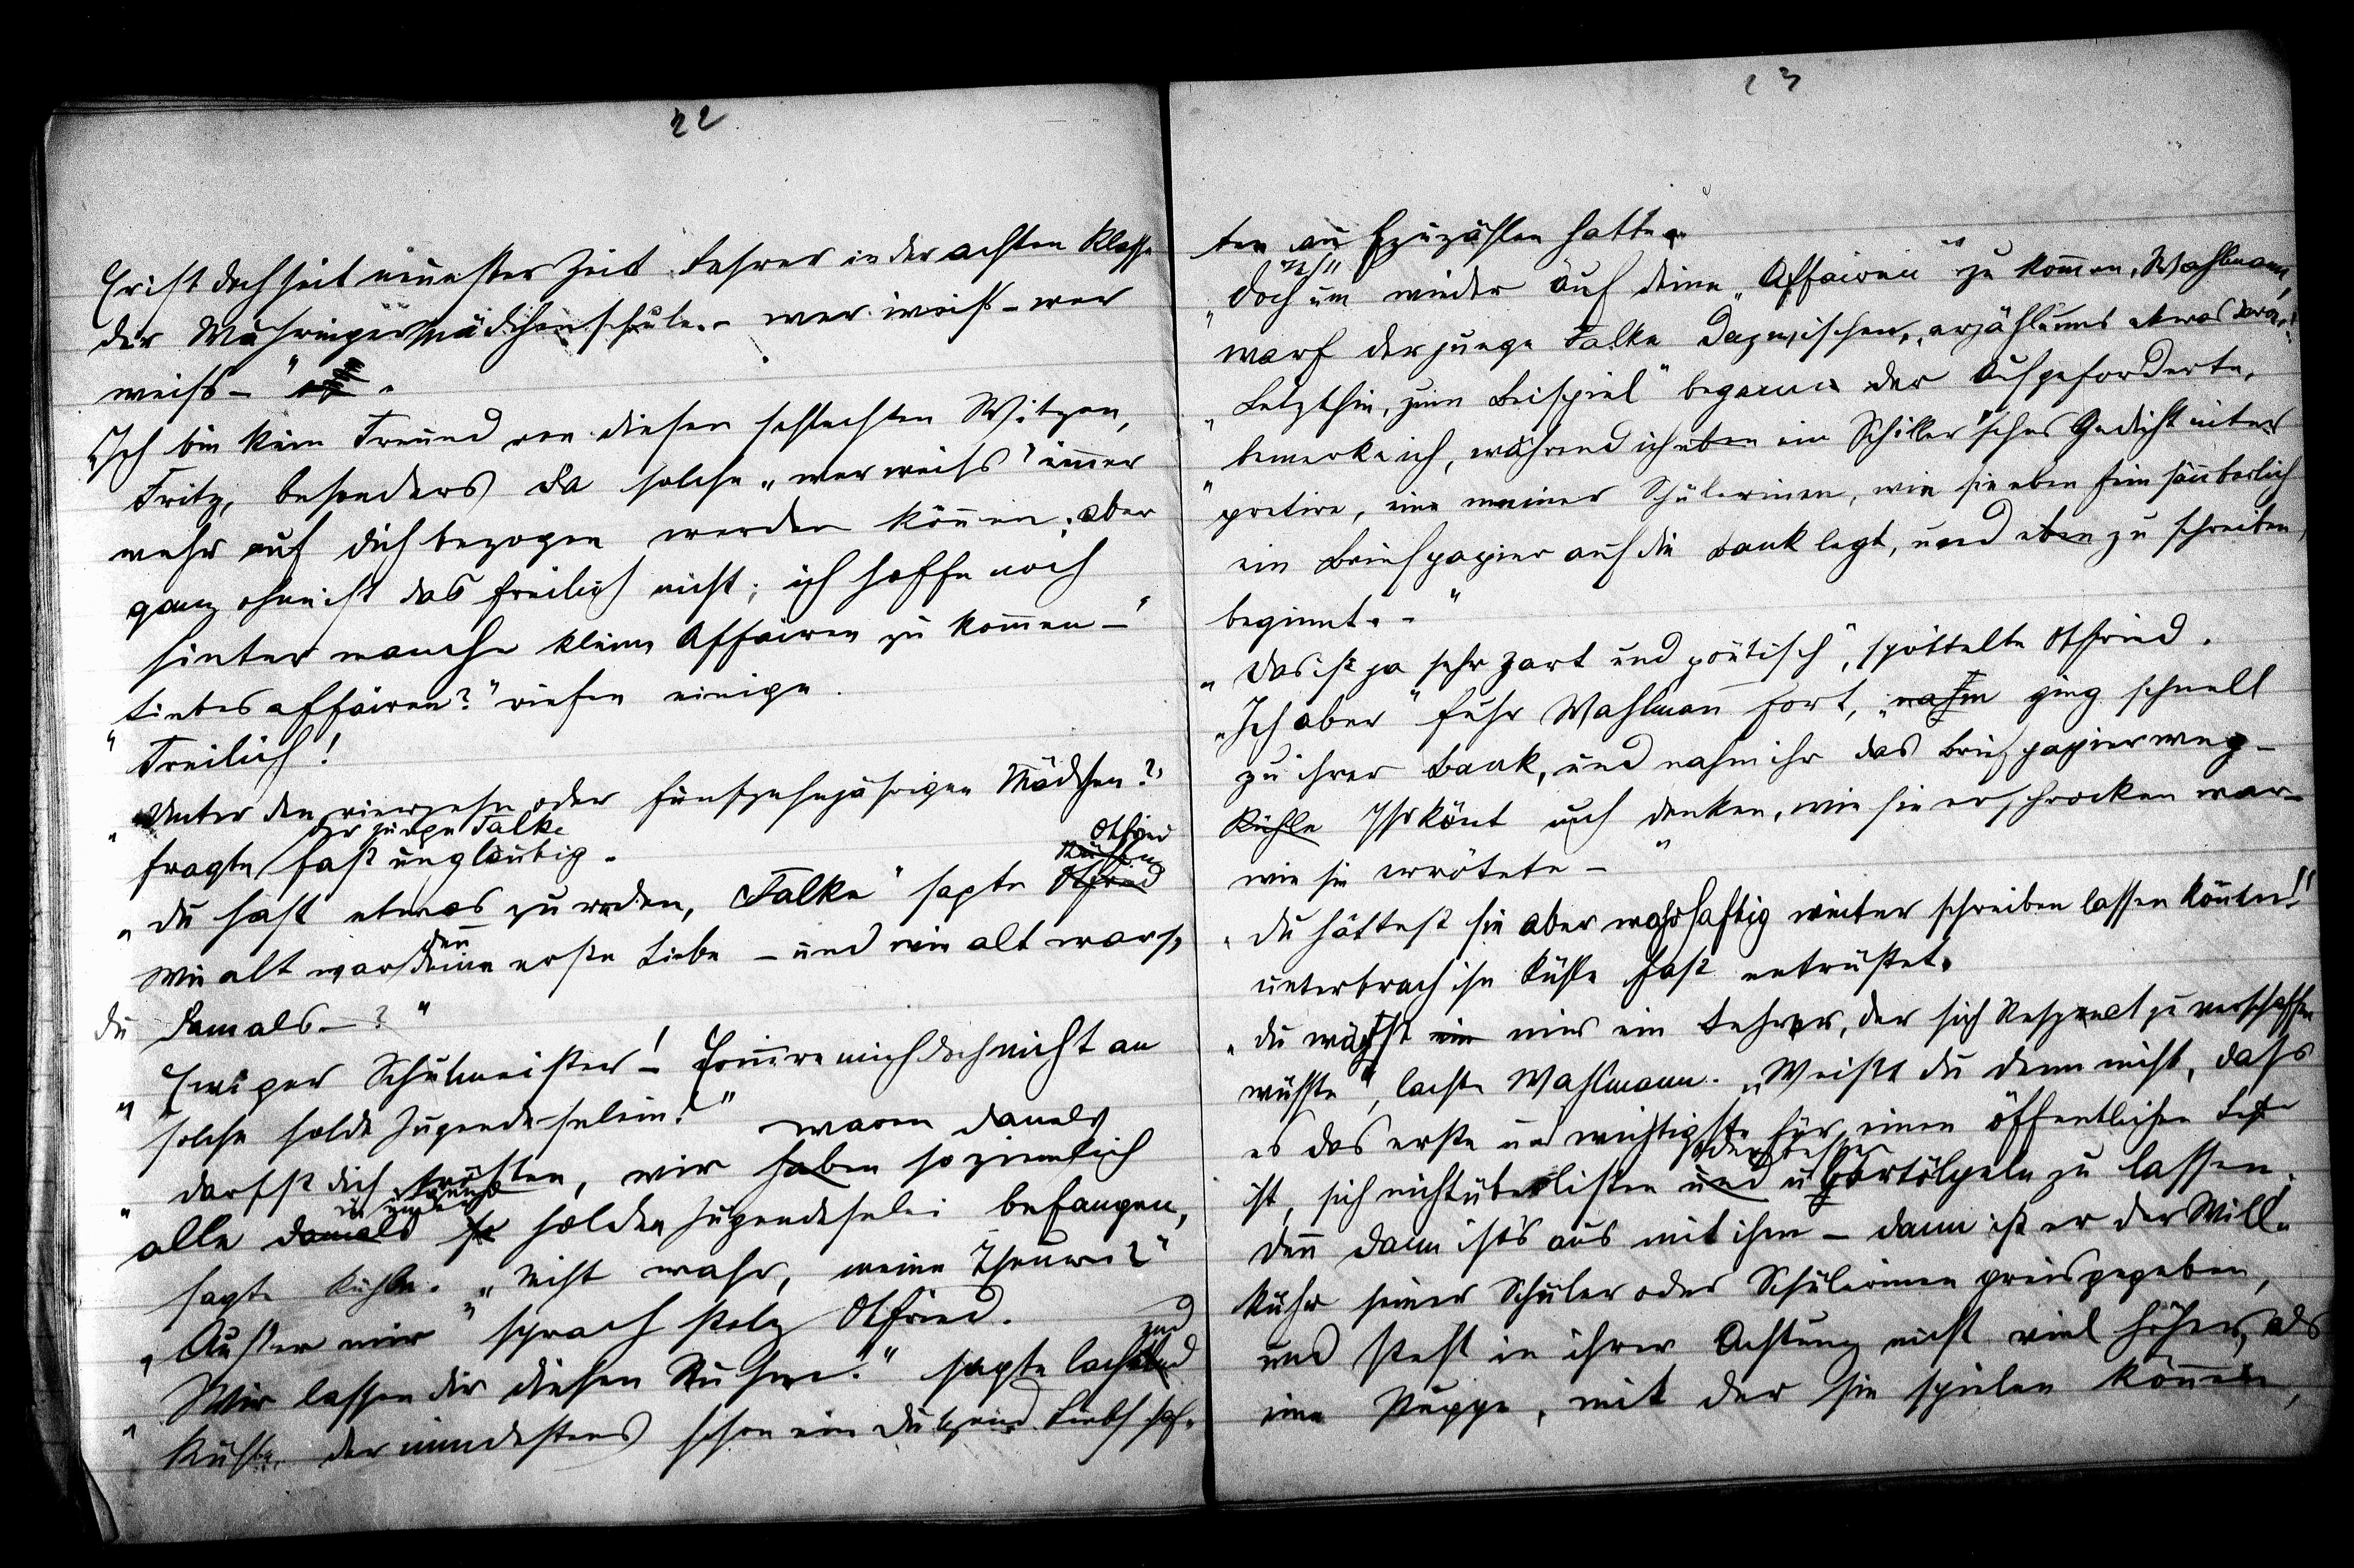 22
Er ist doch seit neuester Zeit Lehrer in der achten Klasse
der Währinger Mädchenschule. – wer weiß – wer
weiß – "
"Ich bin kein Freund von diesen schlechten Witzen,
Fritz, besonders da solche "wer weiß" im̄er
mehr auf dich bezogen werden kön̄en; aber
ganz ohne ist das freilich nicht; ich hoffe noch
hinter manche kleine Affairen zu kom̄en –"
"Liebesaffairen?" riefen einige.
Freilich!
"Unter den vierzehn oder fünfzehnjährigen Mädchen?"
der junge Falke
fragte fast ungläubig.
Otfried
"Du hast etwas zu reden, Falke" sagte Otfried
den̄
Wie alt war deine erste Liebe – und wie alt warst
du damals – ?"
"Ewiger Schulmeister –! Erin̄re mich doch nicht an
solche holde Jugendeselein!"
waren damals
"Darfst dich trösten, wir haben so ziemlich
alle damals so holder Jugendeselei befangen,
sagte Kühle. "Nicht wahr, meine Theuren?"
"Außer mir" sprach stolz Otfried.
"Wir lassen dir diesen Ruhm." sagte lachend
Kühle, der mindestens schon ein Dutzend Liebschaf-
23
ten zu Erzählen hatte.
"Doch um wieder auf deine "Affairen" zu kom̄en, Wahlmann,
warf der junge Falke dazwischen, "erzähl' uns etwas davon!
"Letzthin, zum Beispiel" begann der Aufgeforderte,
"bemerke ich, während ich eben ein Schiller'sches Gedicht inter
"pretire, eine meiner Schülerinen, wie sie eben fein säuberlich
ein Briefpapier auf die Bank legt, und eben zu schreiben,
beginnt. – "
"Das ist ja sehr zart und poetisch", spöttelte Otfried.
"Ich aber" fuhr Wahlman̄ fort, "nahm ging schnell
zu ihrer Bank, und nahm ihr das Briefpapier weg –
Kühle Ihr kön̄t euch denken, wie sie erschrocken war –
wie sie errötete – "
"Du hättest sie aber wahrhaftig weiter schreiben lassen kön̄en!"
unterbrach ihn Kühle fast entrüstet.
"Du wärst ein mir ein Lehrer, der sich Respect zu verschaffen
wüsste", lachte Wahlmann. "Weißt du denn nicht, dass
es das erste und wichtigste für einen öffentlichen Lehrer
oder besser
ist, sich nicht überlisten und übertölpeln zu lassen.
Den̄ dann ist's aus mit ihm – dann ist er der Will-
kühr seiner Schüler oder Schülerinen preisgegeben,
und steht in ihrer Achtung nicht viel höher, als
eine Puppe, mit der sie spielen kön̄en,